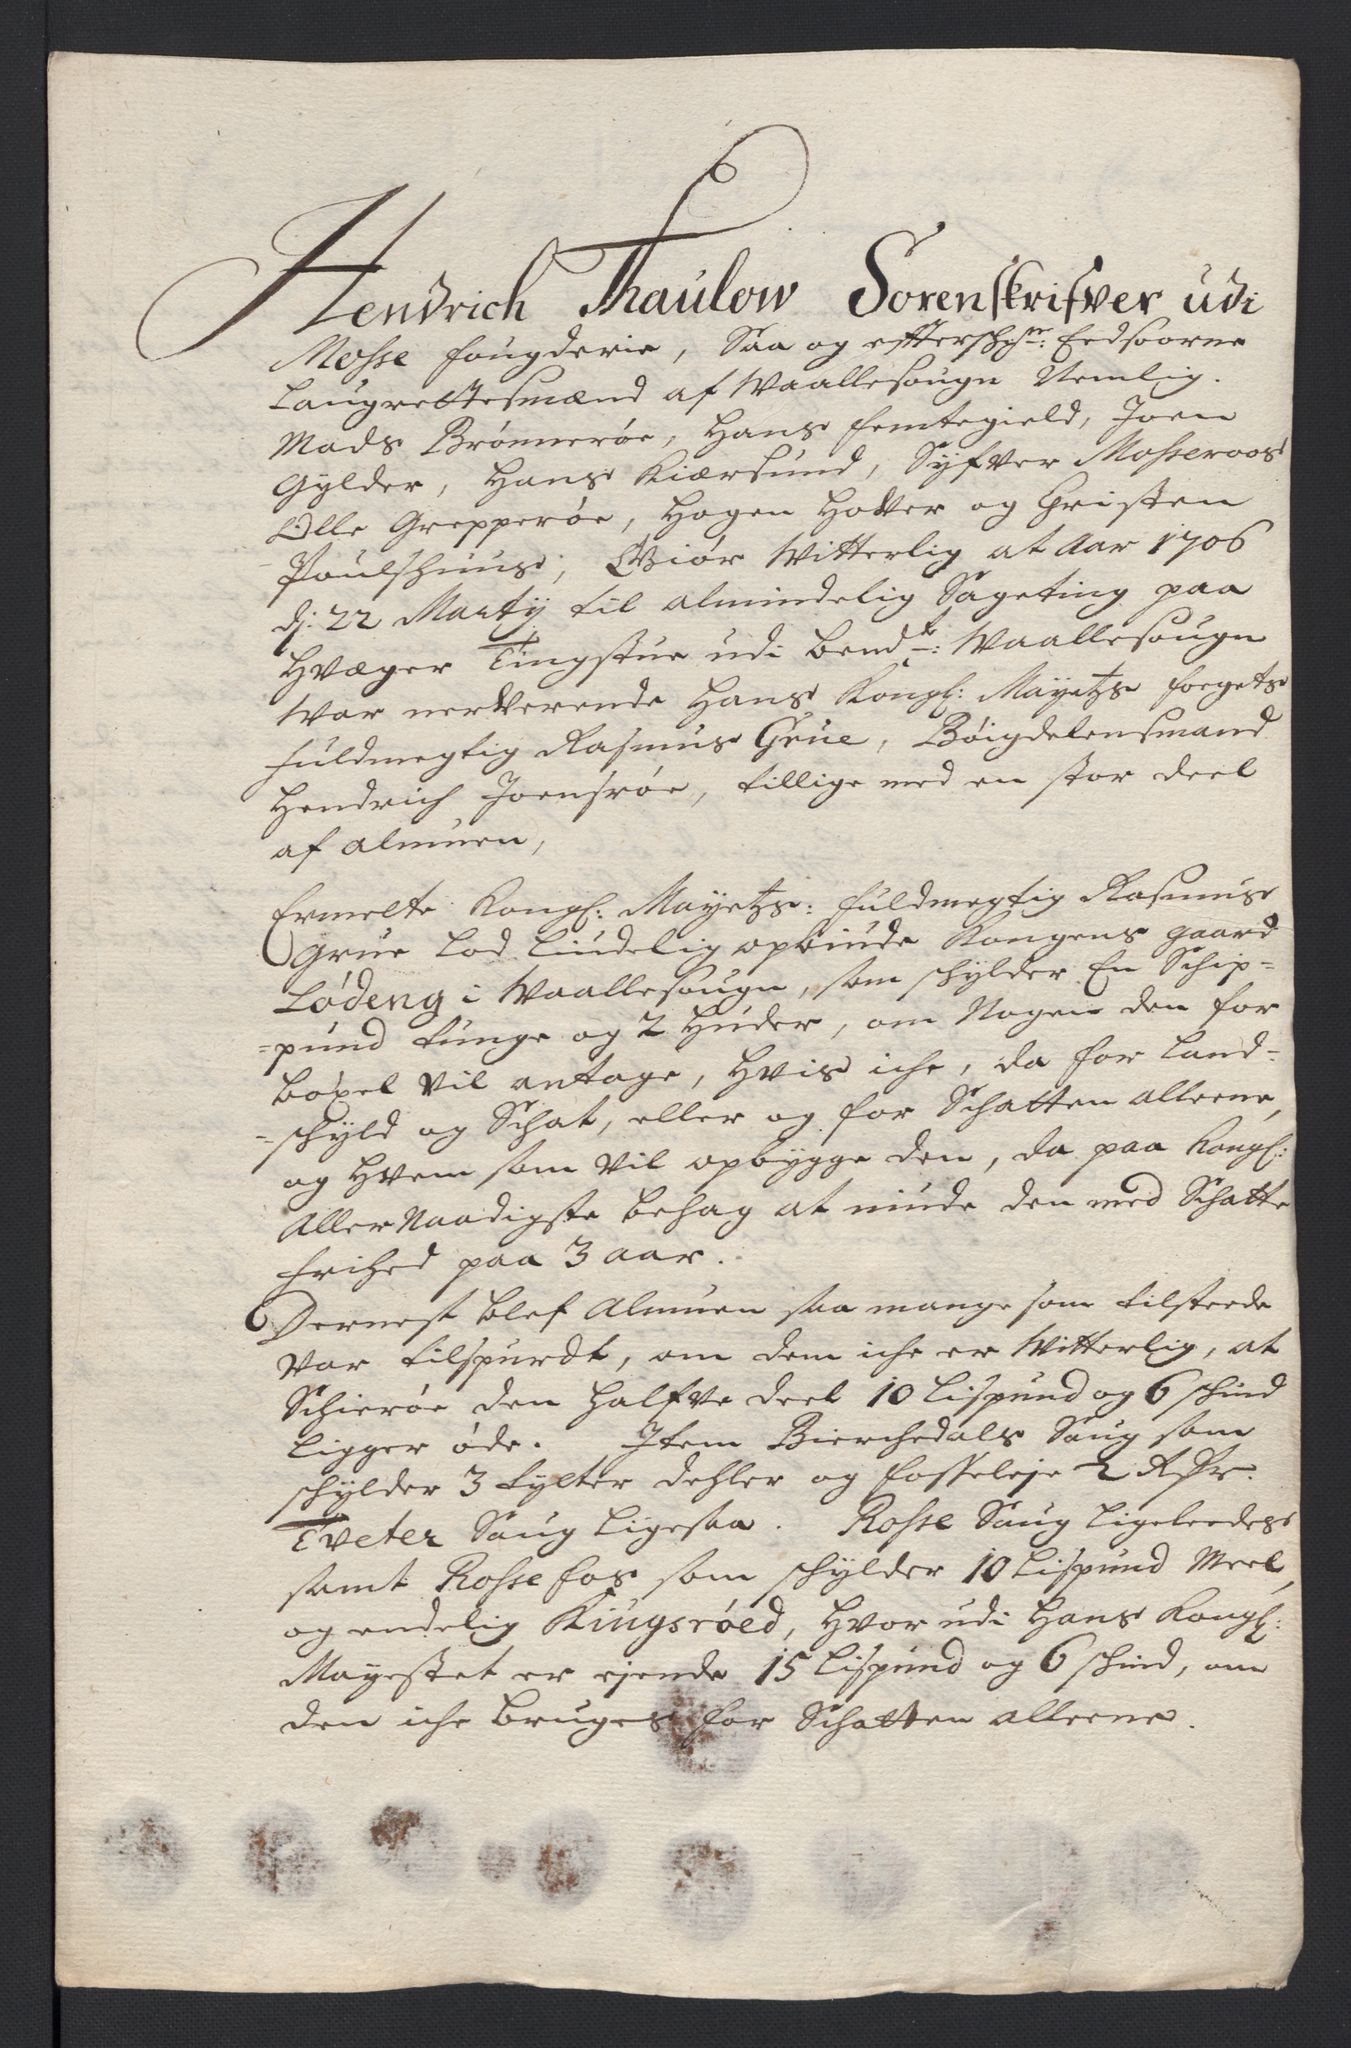 Hendrich Thaulow Sorenskrifver udi
Mosse fougderie, Saa og effterschr: Eedsoorne
Laugrettesmænd af Waallesougn Nemlig.
Mads Brønnerøe, Hans Femtegield, Joen
Gylder, Hans Kiærsund, Syfver Mosseroos
Olle Grepperøe, Hogen Hotter og Christen
Poulshuus, Giør Witterlig at Aar 1706
dj: 22 Marty til almindelig Sageting paa
Hvæger Tingstue udi bendte: Waallesougn
War nerverende Hans Kongl: Mayetzs foegets
fuldmegtig Rasmus Grue, Bøigdelensmand
Hendrich Joensrøe, tillige med en stor deel
af almuen,
Ermelte Kongl: Mayetzs: fuldmegtig Rasmus
Grue lod liudelig opbiude Kongens gaard
Lødeng i Waallesougn, som schylder En Schip-
-pund tunge og 2 Huder, om Nogen den for
boxel vil antage, Hvis iche, da for Land-
-schyld og Schat, eller og for Schatten alleene,
og Hvem som vil opbygge den, da paa Kongl:
Aller Naadigste behag at niude den med Schatte
frihed paa 3 aar.
Dernest blef Almuen saa mange som tilsteede
var tilspurdt, om dem iche er Witterlig, at
Schierøe den halfve deel 10 Lispund og 6 schind
Ligger øde. Item Bierchedals Saug som
schylder 3 tylter dehler og fosseleje 2 Rdr.
Tveter Saug Ligesaa. Rosse Saug Ligeleedes
samt Rosse fos som schylder 10 Lispund Meel,
og endelig Kingsrøed, Hvor udi Hans Kongl:
Mayestet er ejende 15 Lispund og 6 schind, om
den iche bruges for Schatten alleene.